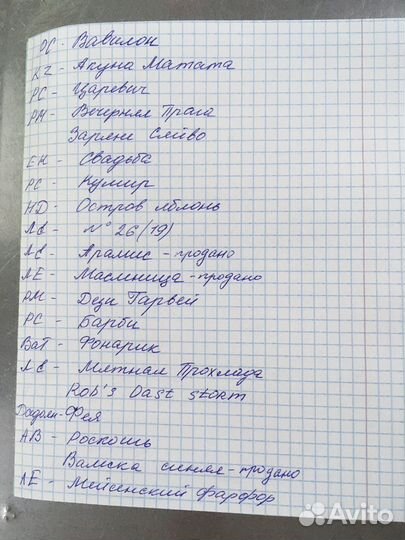 РС - Вавилон
KZ - Акуна Матата
РС - Царевич
РМ - Вечерняя Прага
Заряне Слейво
ЕН - Свадьба
РС - Кумир
НД - Остров яблонь
ЛЕ - N° 26 (19)
ЛЕ - Арамис - продано
ЛЕ - Масленица - продано
РМ - Дези Гарвей
РС - Барби
Ват - Фонарик
ЛЕ - Мятная Прохлада
Rob's Dast storm
Фея
АВ - Роскошь
синяя - продано
ЛЕ - Мейсенский фарфор
Avito